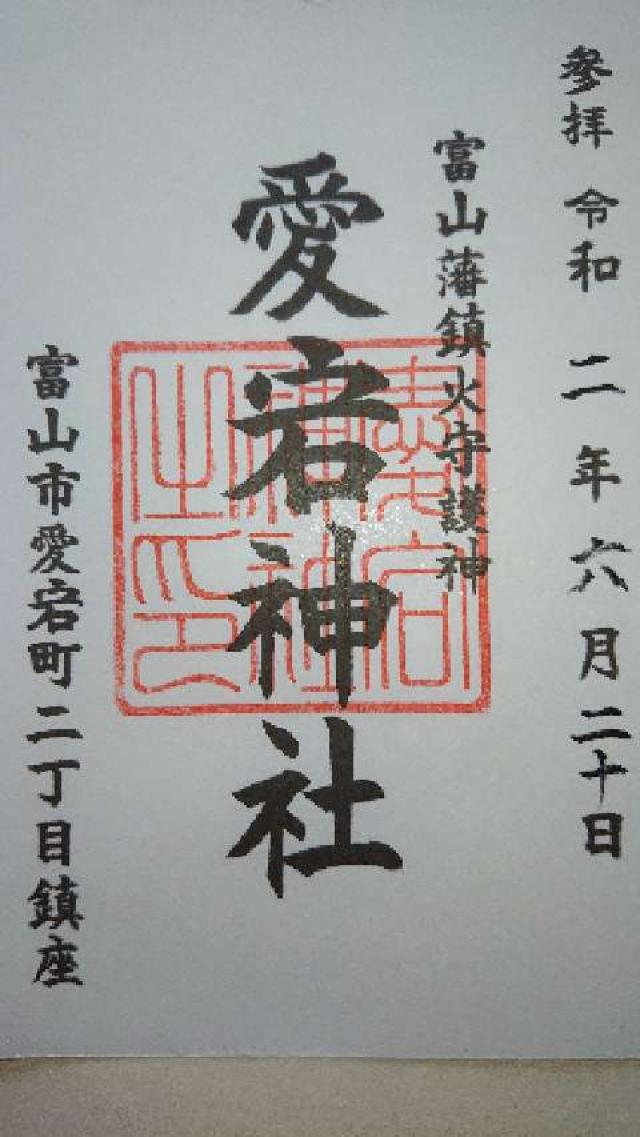 參拝 令和 二 年 六 月 二十日
富山藩鎮火守護神
愛宕神社
愛宕神社之印
富山市愛宕町二丁目鎮座